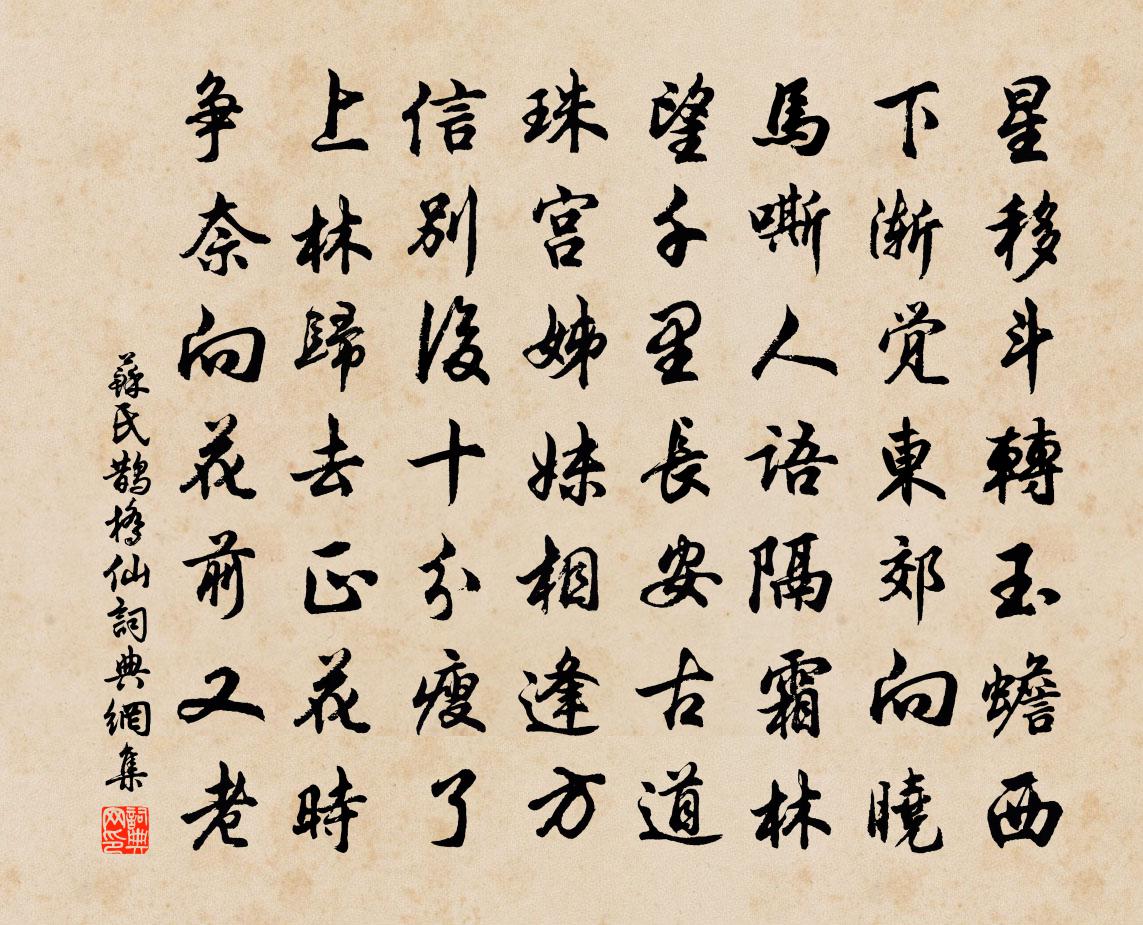 星移斗轉玉蟾西
下漸觉東郊向曉
馬嘶人語隔霜林
望千里長安古道
珠宮姊妹相逢方
信别後十分瘦了
上林歸去正花時
争奈向花前又老
蘇氏鵲橋仙詞典網集
詞典網印